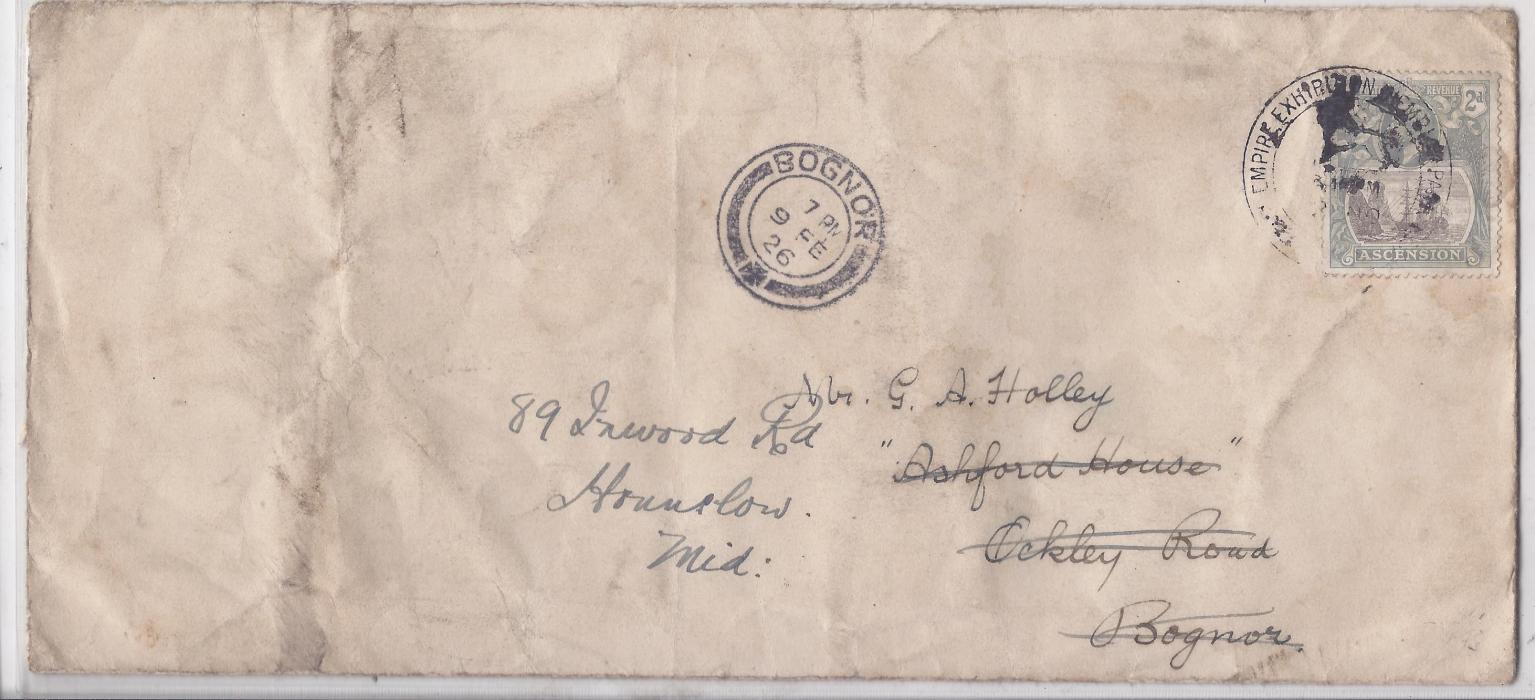 EMPIRE EXHIBITION
REVENUE
2d
ASCENSION
BOGNOR
7 PM
9 FE
26
Mr. G. A. Holley
"Ashford House"
Ockley Road
Bognor.
89 Inwood Rd
Hounslow.
Mid: